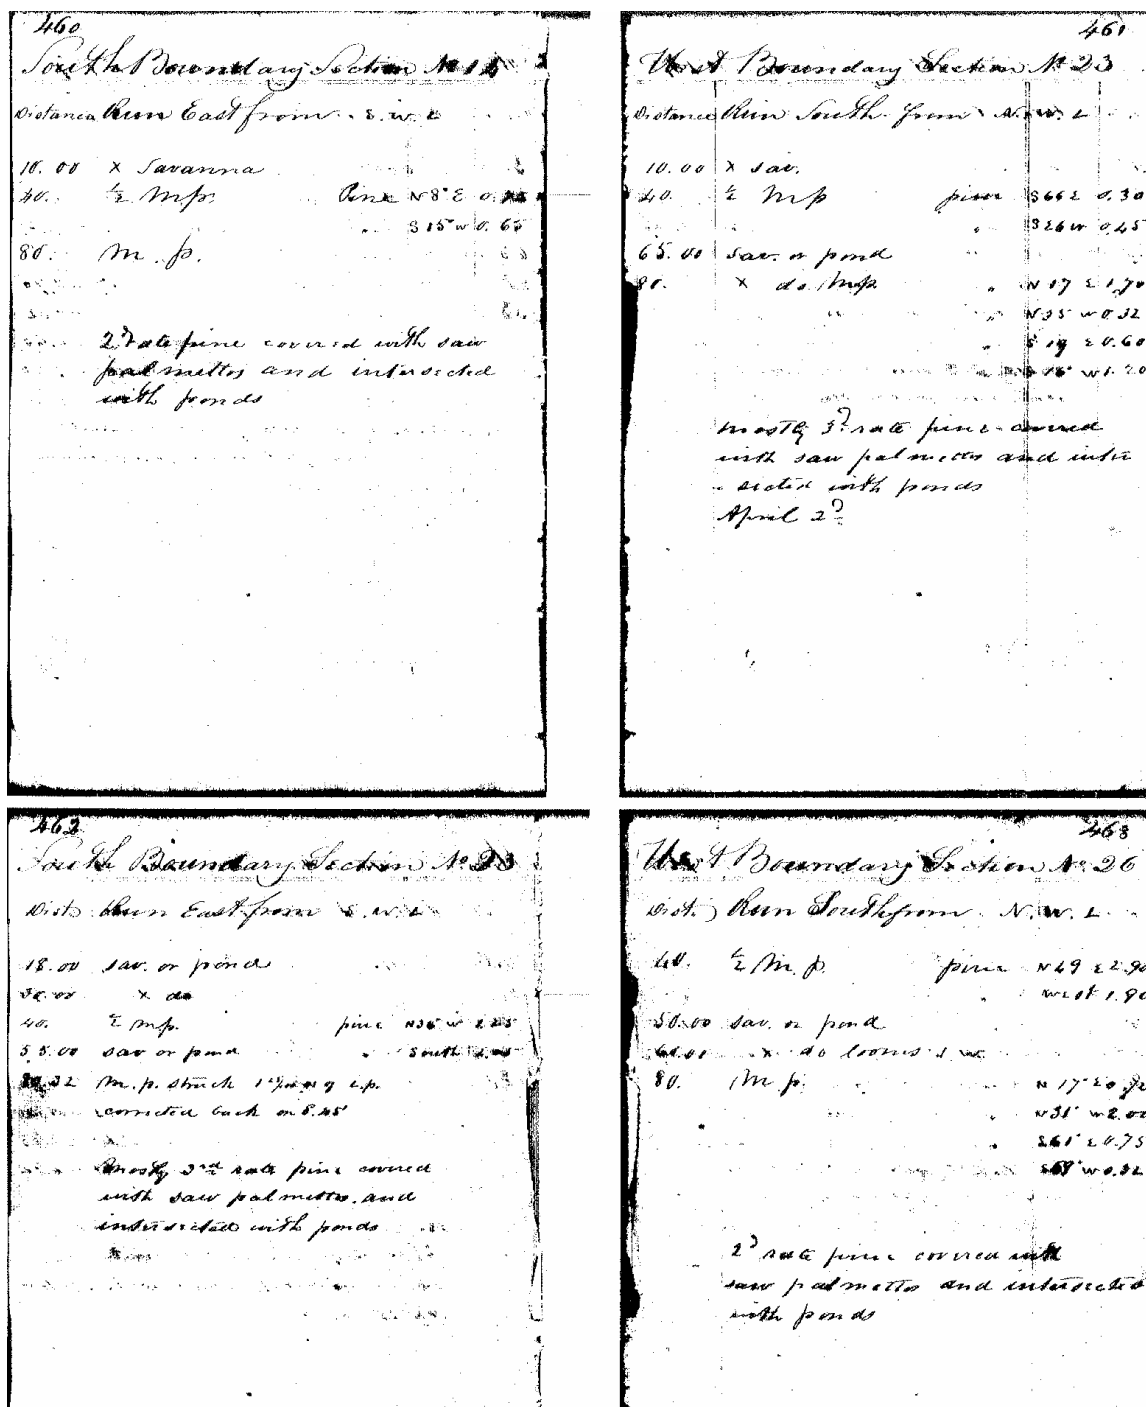 460
South Boundary Section No
Distance Run East from S. W. L
10. 00 x Savanna
40. ½ M.p. Pine N 8° E
" S 15° W 0. 65
80. M. p.
2d rate pine covered with saw
palmettos and intersected
with ponds
461
West Boundary Section No 23
Distance Run South from N. W. L
10. 00 x sav.
40. ½ M p pine S 66 E 0. 30
" S 26 W 0.45
65. 00 sav. or pond
80. x do M.p. " N 17 E 1.70
" N 35 W 0.32
" S 19 E 0.60
W 1. 20
mostly 3d rate pine covered
with saw palmettos and inter
sected with ponds
April 2d
462
South Boundary Section No 23
Dist. Run East from S. W. L
18. 00 sav. or pond
30. 00 x do
40. ½ m.p. pine N 36 W
55. 00 sav or pond " South
M. p. struck
corrected back on
mostly 3rd rate pine covered
with saw palmettos and
intersected with ponds
463
West Boundary Section No 26
Dist. Run South from N. W. L
40. ½ M. p. pine N 49 E 2.90
West 1.90
50.00 sav. or pond
x do
80. M p. " N 17 E
" N 31 W 2.00
" E 0.75
W 0.32
2d rate pine covered with
saw palmettos and intersected
with ponds